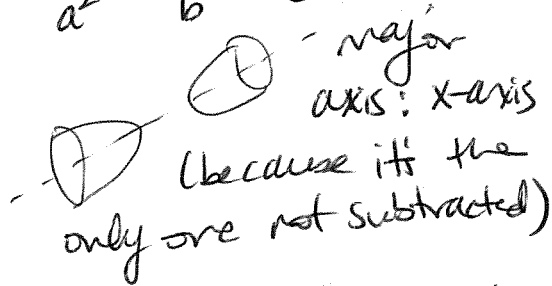 a² b
major
axis: x-axis
(because it's the
only one not subtracted)